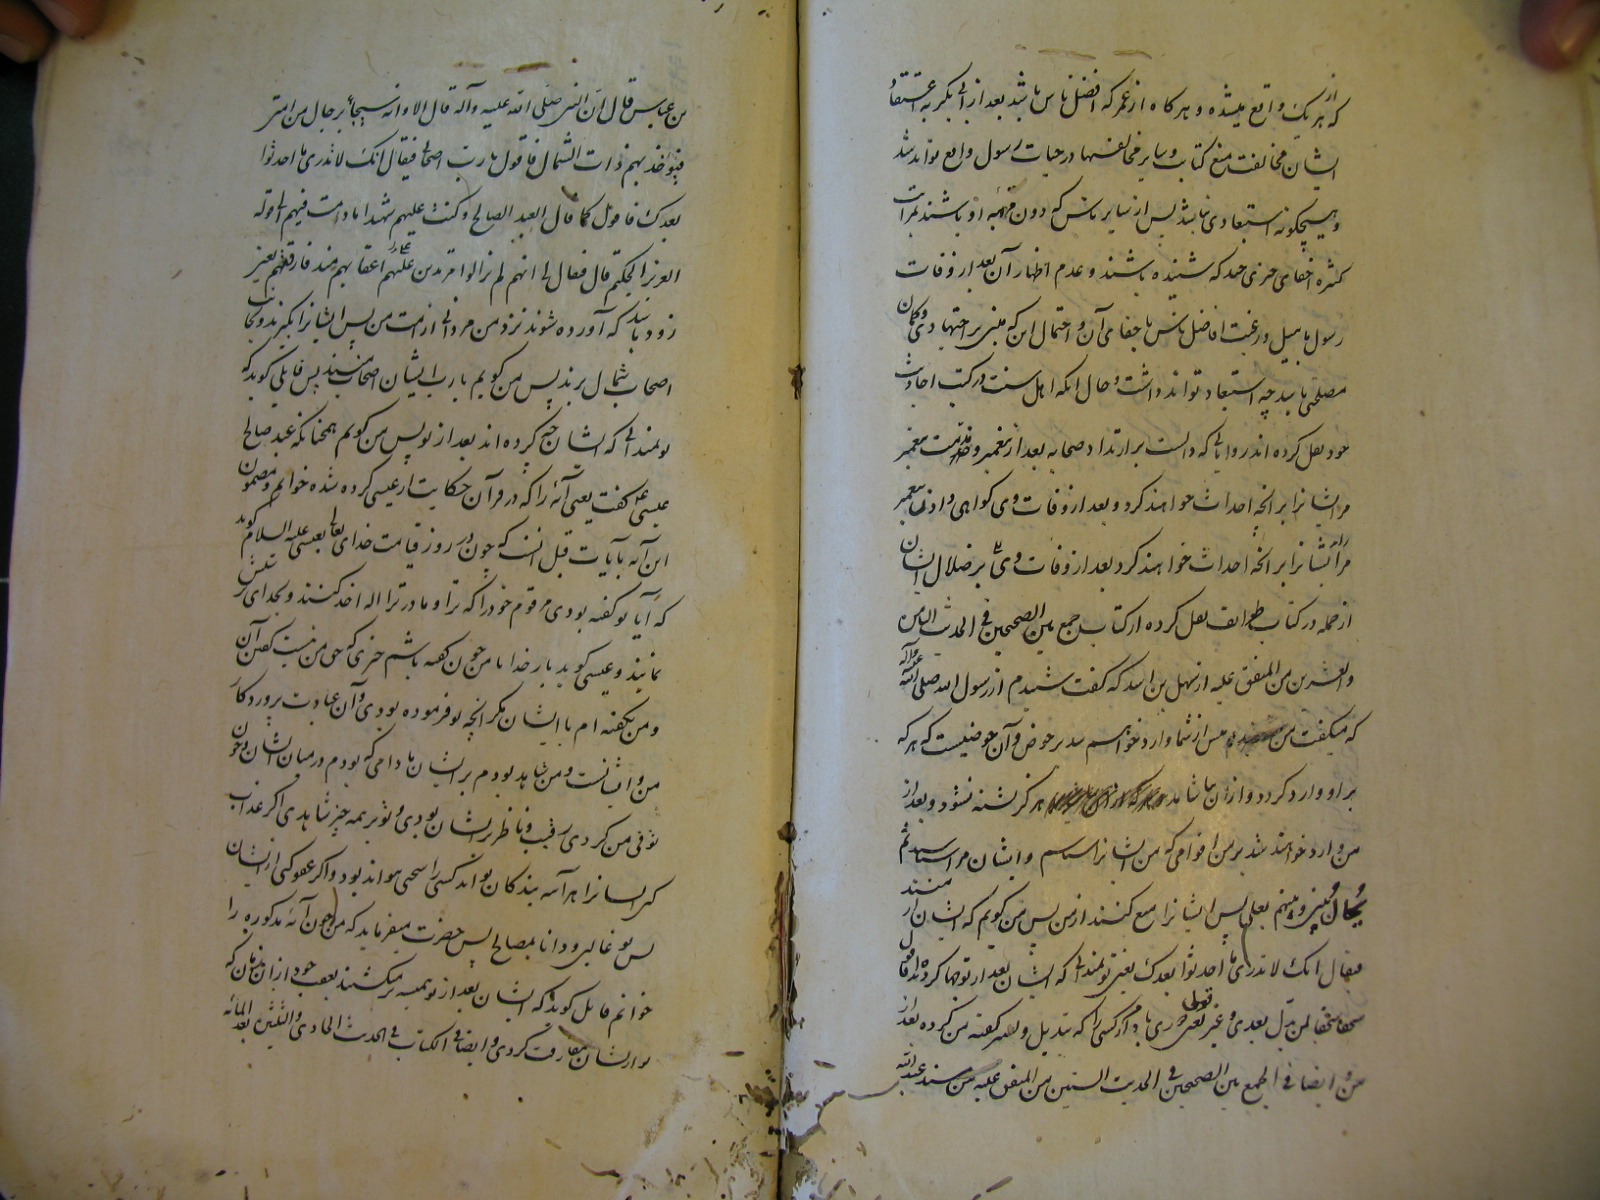 که هر یک از واقع میشده و هر کاه از عمر که افضل ناس باشد بعد از ابی بکر به اعتقاد
ایشان مخالفت منع کتاب و سایر مخالفتها در حیات رسول واقع تواند شد
و هیچکونه استبعادی نباشد پس از سایر ناس که دون مرتبه او باشند بمراتب
کثیره اخفای خبری چند که شنیده باشند و عدم اظهار آن بعد از وفات
رسول با میل و رغبت افاضل ناس باخفای آن و احتمال این که مبنی بر اجتهادی و کمان
مصلحتی باشد چه استبعاد تواند داشت و حال آنکه اهل سنت در کتب احادیث
خود نقل کرده اند روایاتی که دالست بر ارتداد صحابه بعد از پیغمبر و مذمت پیغمبر
مر ایشانرا بر آنچه احداث خواهند کرد و بعد از وفات وی کواهی دادن پیغمبر
مر ایشانرا بر آنچه احداث خواهند کرد بعد از وفات وی بر ضلال ایشان
از جمله در کتاب طرایف نقل کرده از کتاب جمع بین الصحیحین فی الحدیث الثامن
والعشرین من المتفق علیه از سهل بن سعد که کفت شنیدم از رسول الله صلی الله علیه و آله
که میکفت من پیش از شما وارد خواهم شد بر حوض و آن حوضیست که هر که
بر او وارد کردد و از آن بیاشامد هرکز تشنه نشود و بعد از
من وارد خواهند شد بر من اقوامی که من ایشانرا شناسم و ایشان مرا شناسند ثم
یحال بینی و بینهم یعنی پس ایشانرا منع کنند از من پس من کویم که ایشان از منند
فیقال انک لا تدری ما احدثوا بعدک یعنی تو نمیدانی که ایشان بعد از تو چها کرده اند فاقول
سحقا سحقا لمن بدل بعدی و غیر یعنی دوری باد مر آن کسی را که تبدیل و تغییر کفته من کرده بعد از
من و ایضا فی الجمع بین الصحیحین فی الحدیث الستین من المتفق علیه من مسند عبدالله
بن عباس قال ان النبی صلی الله علیه وآله قال الا و انه سیجاء برجال من امتی
فیؤخذ بهم ذات الشمال فاقول یا رب اصحابی فیقال انک لا تدری ما احدثوا
بعدک فاقول کما قال العبد الصالح و کنت علیهم شهیدا ما دمت فیهم الی قوله
العزیز الحکیم قال فیقال لی انهم لم یزالوا مرتدین علی اعقابهم منذ فارقتهم یعنی
زود باشد که آورده شوند نزد من مردانی از امت من پس ایشانرا بکیرند و بجانب
اصحاب شمال برند پس من کویم یا رب ایشان اصحاب منند پس قایلی کوید که
تو نمیدانی که ایشان چه کرده اند بعد از تو پس من کویم همچنانکه عبد صالح
عیسی کفت یعنی آیه را که در قرآن حکایت از عیسی کرده شده خوانم و مضمون
این آیه بآیات قبل اینست که چون در روز قیامت خدای تعالی بعیسی علیه السلام کوید
که آیا تو کفته بودی مر قوم خود را که ترا و مادر ترا اله اخذ کنند و بخدای پرستش
نمایند و عیسی کوید بار خدایا من چون کفته باشم چیزی که حق من نیست کفتن آن
و من نکفته ام با ایشان مکر آنچه تو فرموده بودی و آن عبادت پروردکار
من و ایشانست و من شاهد بودم بر ایشان مادامی که بودم در میان ایشان و چون
توفی من کردی رقیب و ناظر بر ایشان تو بودی و تو بر همه چیز شاهدی اکر عذاب
کنی ایشانرا هر آینه بندکان تواند کسی را سخنی نتواند بود و اکر عفو کنی از ایشان
پس تو غالبی و دانا بمصالح پس حضرت میفرماید که من چون آیه مذکوره را
خوانم قایل کوید که ایشان بعد از تو همیشه برمیکشتند بعقب خود از آن زمان که
تو از ایشان مفارقت کردی و ایضا فی الکتاب فی الحدیث الحادی والثلثین بعد المائه